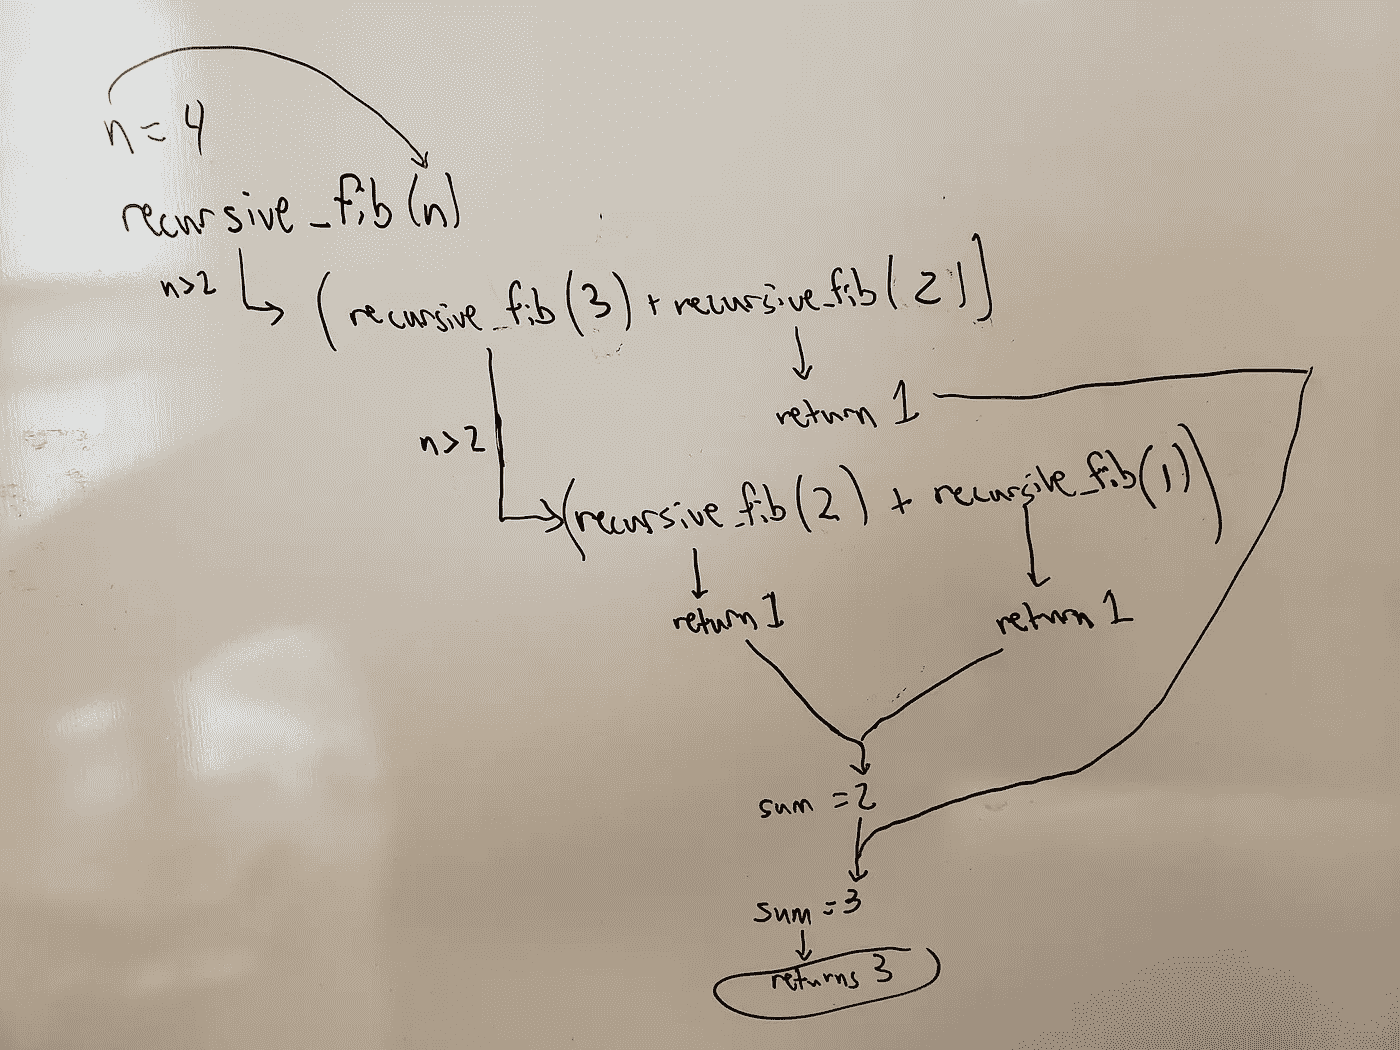 n = 4
recursive_fib(n)
n>2
(recursive_fib(3) + recursive_fib(2))
return 1
n>2
(recursive_fib(2) + recursive_fib(1))
return 1
return 1
sum = 2
sum = 3
returns 3